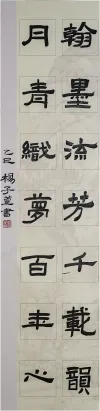 翰墨流芳千載韻
丹青織夢百年心
乙巳 楊子益書